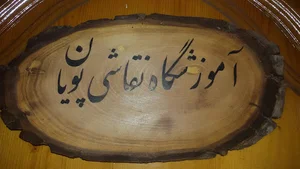 آموزشگاه نقاشی پویان